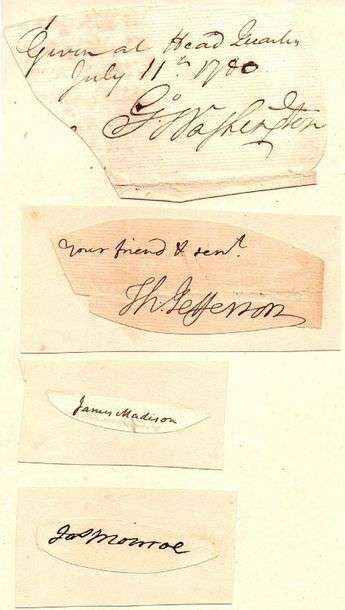 Given at Head Quarters
July 11th 1780
Go Washington
Your friend & servt.
Th. Jefferson
James Madison
Jas Monroe